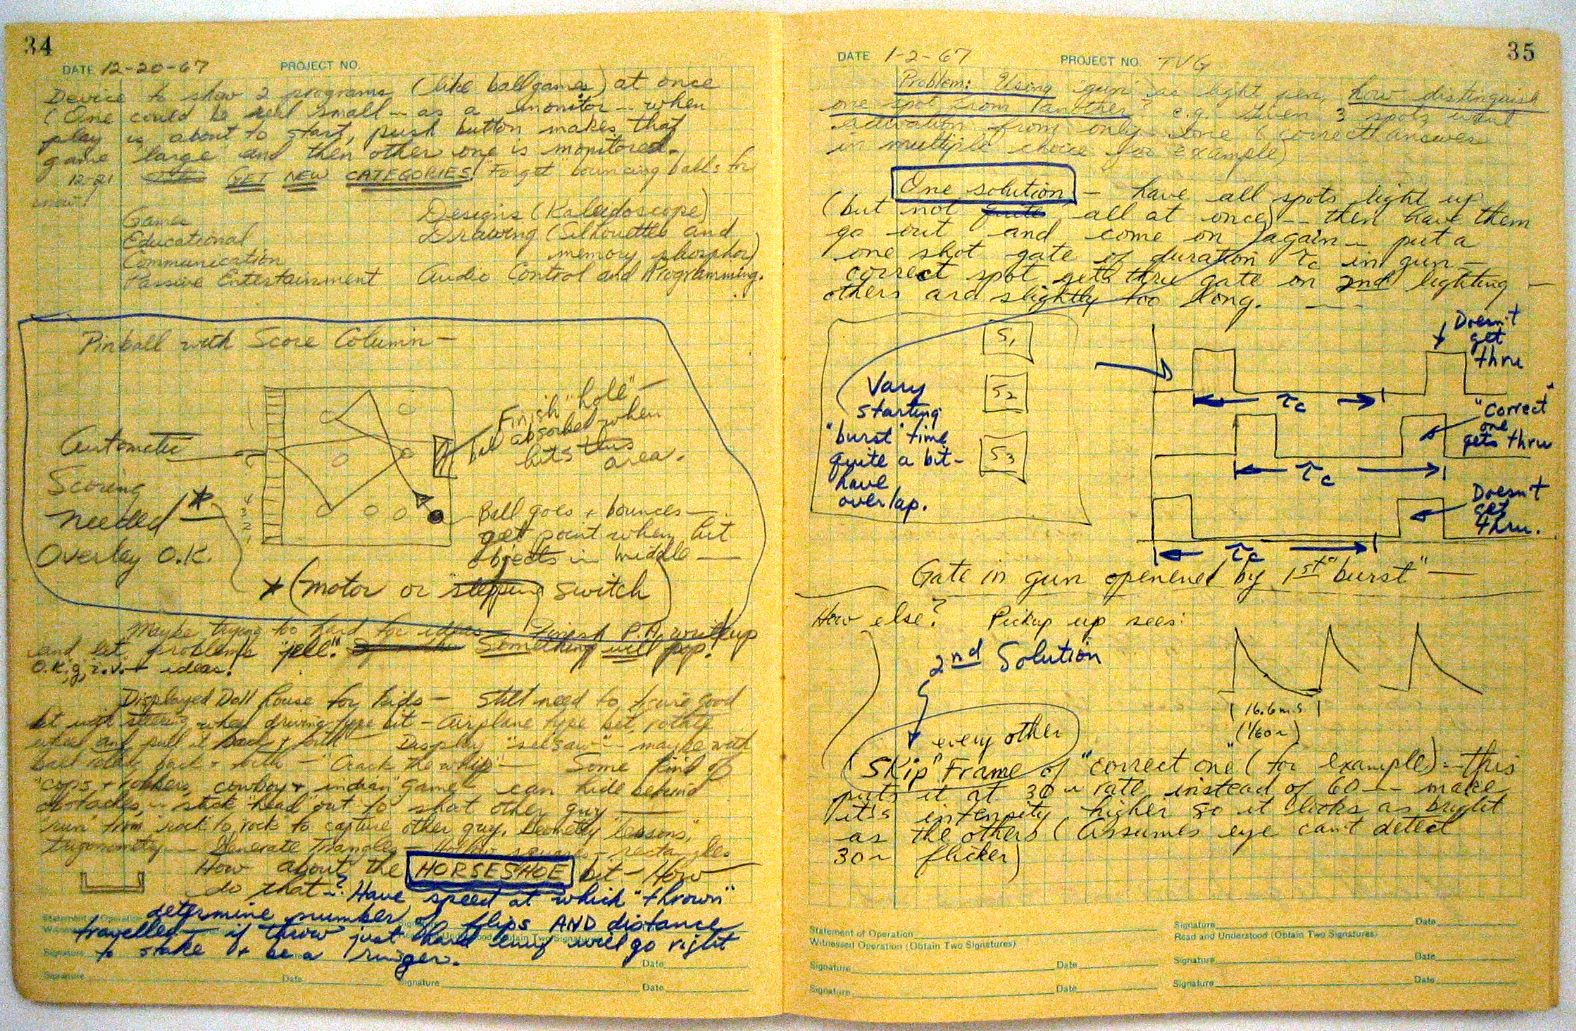 34
DATE 12-20-67 PROJECT NO.
Device to show 2 programs (like ballgames) at once
(One could be small - as a monitor - when
play is about to start, push button makes that
game large and then other one is monitored.
12-21 GET NEW CATEGORIES! Forget bouncing balls for
now!
Games
Educational
Communication
Passive Entertainment
Designs (Kaleidoscope)
Drawing (Silhouettes and
memory phosphor)
Audio Control and Programming.
Pinball with Score Column -
Automatic
Scoring
needed *
Overlay O.K.
Finish "hole" -
ball absorbed when
hits this
area.
Ball goes + bounces -
get point when hit
objects in middle -
* (motor or stepping switch
Maybe trying too hard for ideas - Finish P.A. writeup
and let problems "jell". Something will pop!
O.K., g.z.v. + ideas!
Displayed Doll House for Kids - Still need to figure good
steering wheel driving type bit - Airplane type bet, rotate
wheel and pull it back + forth Display "seesaw" - maybe with
ball back + forth - "Crack the whip" - Some kind of
"cops + robbers, cowboy + indian" game can hide behind
obstacles - stick head out to shoot other guy -
"run" from rock to rock to capture other guy. Geometry "lessons,"
trigonometry - Generate Triangles - squares - rectangles
How about the HORSESHOE bit - How
do that -? Have speed at which "thrown"
determine number of flips AND distance
travelled - if throw just hard enuf will go right
to stake + be a ringer.
Statement of Operation
Signature Date
Signature Date
Signature Date
35
DATE 1-2-67 PROJECT NO. TVG
Problem: Using "gun" as light pen, how distinguish
one spot from another? e.g. Given 3 spots want
activation from only one (correct answer
in multiple choice for example)
One solution - have all spots light up
(but not quite all at once) - then have them
go out and come on again - put a
one shot gate of duration τc in gun -
correct spot gets thru gate on 2nd lighting -
others are slightly too long.
S1
S2
S3
Vary
starting
"burst" time
quite a bit -
have
overlap.
Doesn't
get
thru
τc
"Correct"
one
gets thru
τc
Doesn't
get
thru.
τc
Gate in gun opened by 1st "burst" -
How else? Pickup up sees:
2nd Solution
16.6 m.s.
(1/60 ~)
every other
"Skip" Frame of "correct one" (for example) - this
puts it at 30 ~ rate instead of 60 - make
it's intensity higher so it looks as bright
as the others (Assumes eye can't detect
30 ~ flicker)
Statement of Operation
Witnessed Operation (Obtain Two Signatures)
Signature Date
Signature Date
Signature Date
Read and Understood (Obtain Two Signatures)
Signature Date
Signature Date